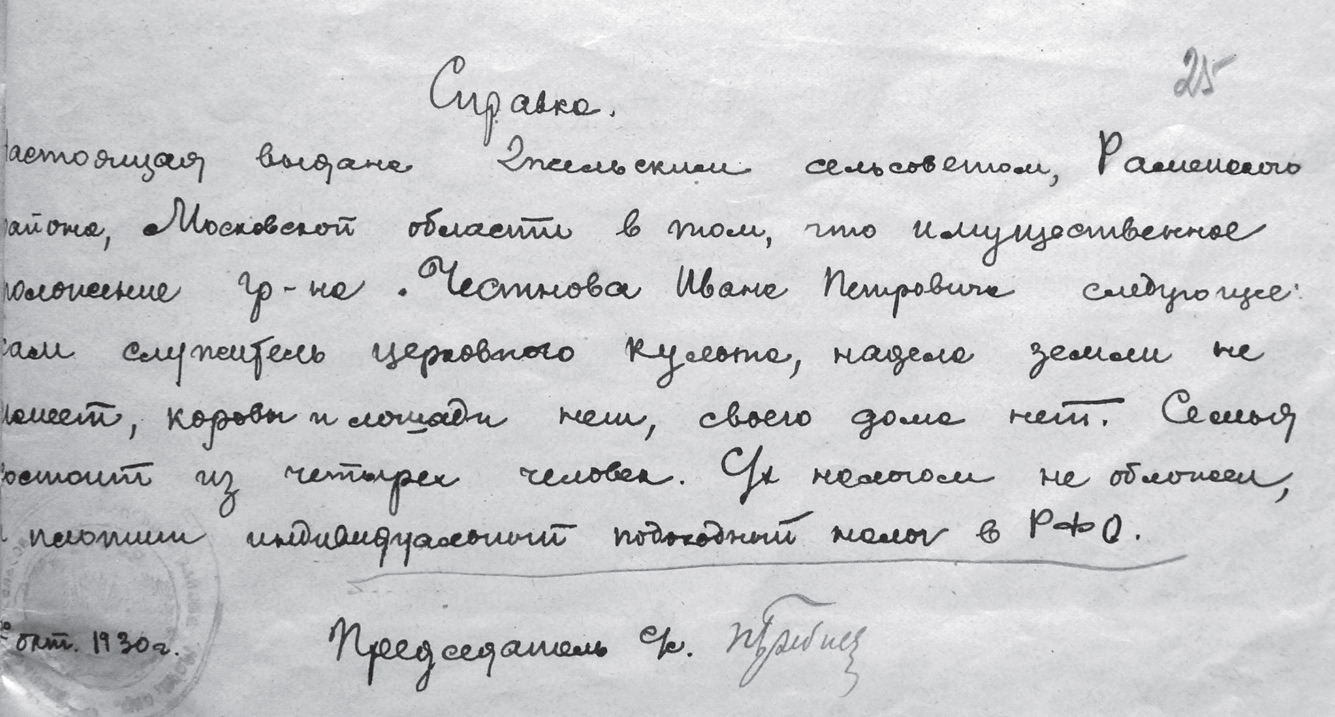 25
Справка.
настоящая выдана Гжельским сельсоветом, Раменского
района, Московской области в том, что имущественное
положение гр-на Честнова Ивана Петровича следующее:
сам служитель церковного культа, надела земли не
имеет, коровы и лошади нет, своего дома нет. Семья
состоит из четырех человек. С/х налогом не обложен,
а платит индивидуальный подоходный налог в РФО.
окт. 1930г. Председатель с/с.